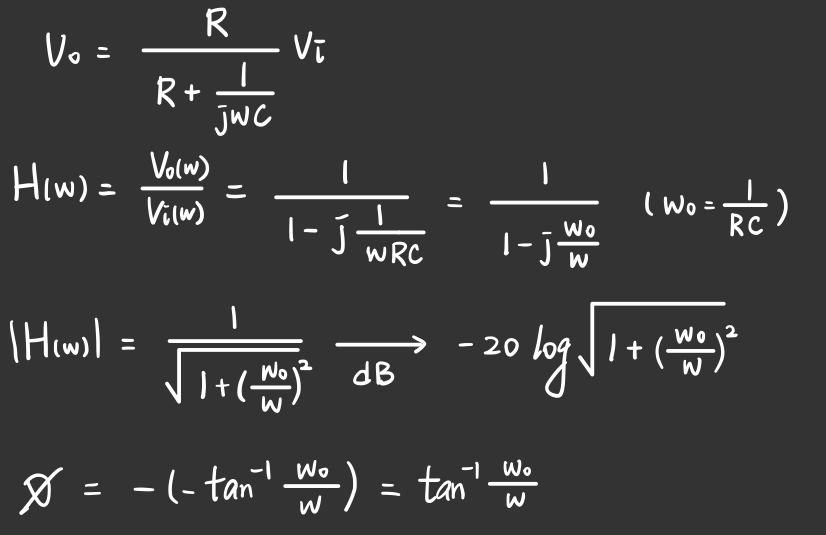 V₀ = R / (R + 1/(jwC)) Vi
H(w) = V₀(w)/Vi(w) = 1 / (1 - j 1/(wRC)) = 1 / (1 - j w₀/w) (w₀ = 1/(RC))
|H(w)| = 1 / √(1 + (w₀/w)²) → dB - 20 log √(1 + (w₀/w)²)
∅ = - (- tan⁻¹ w₀/w) = tan⁻¹ w₀/w